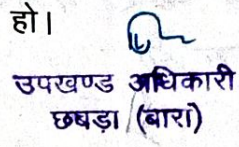 हो।
उपखण्ड अधिकारी
छबड़ा (बारां)